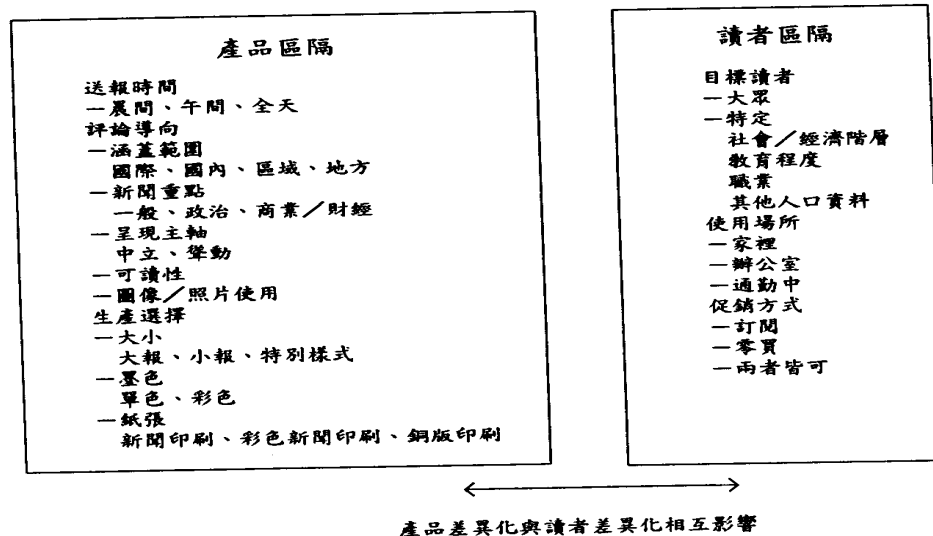 產品區隔
送報時間
—晨間、午間、全天
評論導向
—涵蓋範圍
國際、國內、區域、地方
—新聞重點
一般、政治、商業／財經
—呈現主軸
中立、聳動
—可讀性
—圖像／照片使用
生產選擇
—大小
大報、小報、特別樣式
—墨色
單色、彩色
—紙張
新聞印刷、彩色新聞印刷、銅版印刷
讀者區隔
目標讀者
—大眾
—特定
社會／經濟階層
教育程度
職業
其他人口資料
使用場所
—家裡
—辦公室
—通勤中
促銷方式
—訂閱
—零買
—兩者皆可
產品差異化與讀者差異化相互影響